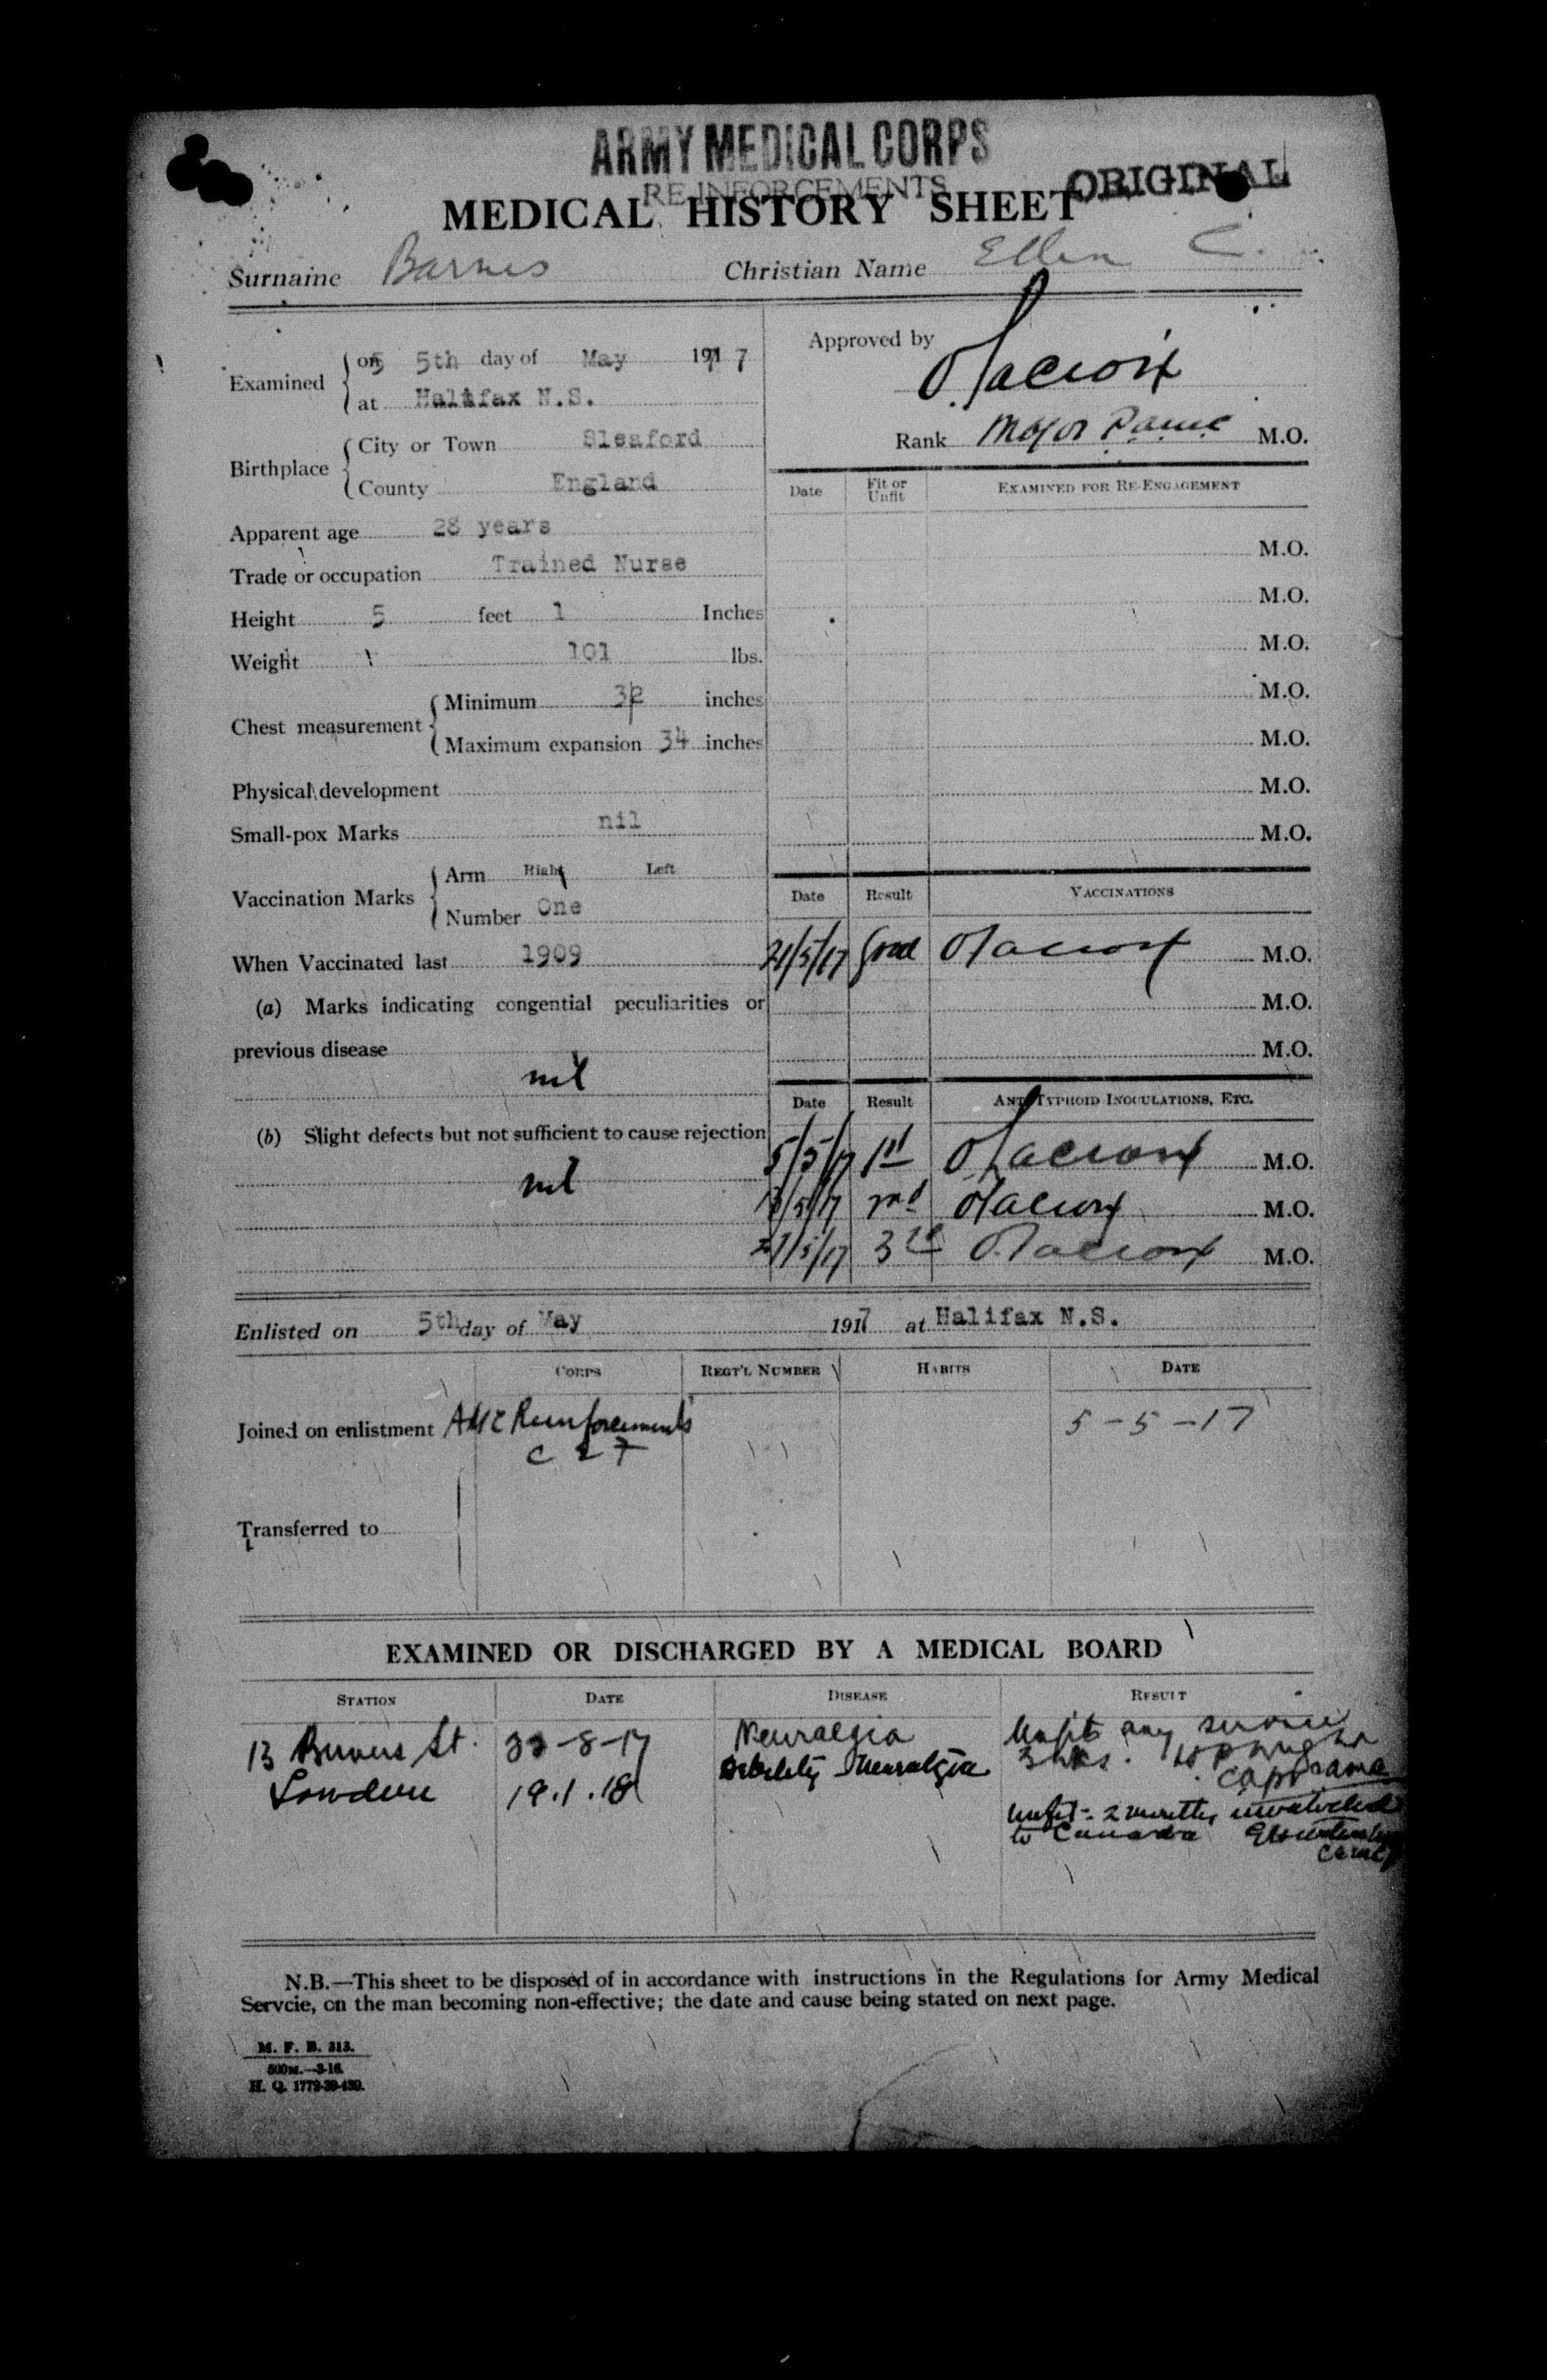 ARMY MEDICAL CORPS
REINFORCEMENTS
ORIGINAL
MEDICAL HISTORY SHEET
Surname Barnes Christian Name Ellen C.
Examined on 5th day of May 1917
at Halifax N.S.
Approved by O. Lacroix
Rank Major M.O.
Birthplace City or Town Sleaford
County England
Date Fit or Unfit EXAMINED FOR RE-ENGAGEMENT
Apparent age 28 years
M.O.
Trade or occupation Trained Nurse
M.O.
Height 5 feet 1 Inches
M.O.
Weight 101 lbs.
M.O.
Chest measurement Minimum 32 inches
Maximum expansion 34 inches
M.O.
Physical development
M.O.
Small-pox Marks nil
M.O.
Vaccination Marks Arm Right Left
Number One
Date Result VACCINATIONS
When Vaccinated last 1909
21/5/17 Good O Lacroix M.O.
(a) Marks indicating congential peculiarities or
M.O.
previous disease
M.O.
nil
Date Result ANTI-TYPHOID INOCULATIONS, ETC.
(b) Slight defects but not sufficient to cause rejection
5/5/17 1st O Lacroix M.O.
nil
/5/17 2nd O Lacroix M.O.
21/5/17 3rd O. Lacroix M.O.
Enlisted on 5th day of May 1917 at Halifax N.S.
CORPS REGT'L NUMBER HABITS DATE
Joined on enlistment AMC Reinforcements 5-5-17
C 27
Transferred to
EXAMINED OR DISCHARGED BY A MEDICAL BOARD
STATION DATE DISEASE RESULT
13 Berners St. -8-17 Neuralgia Unfit any service
3 wks.
Capt
London 19.1.18 Debility Neuralgia
Unfit - 2 months, invalided
to Canada
N.B.—This sheet to be disposed of in accordance with instructions in the Regulations for Army Medical
Servcie, on the man becoming non-effective; the date and cause being stated on next page.
M. F. B. 313.
500M.—3-16.
H. Q. 1772-39-439.